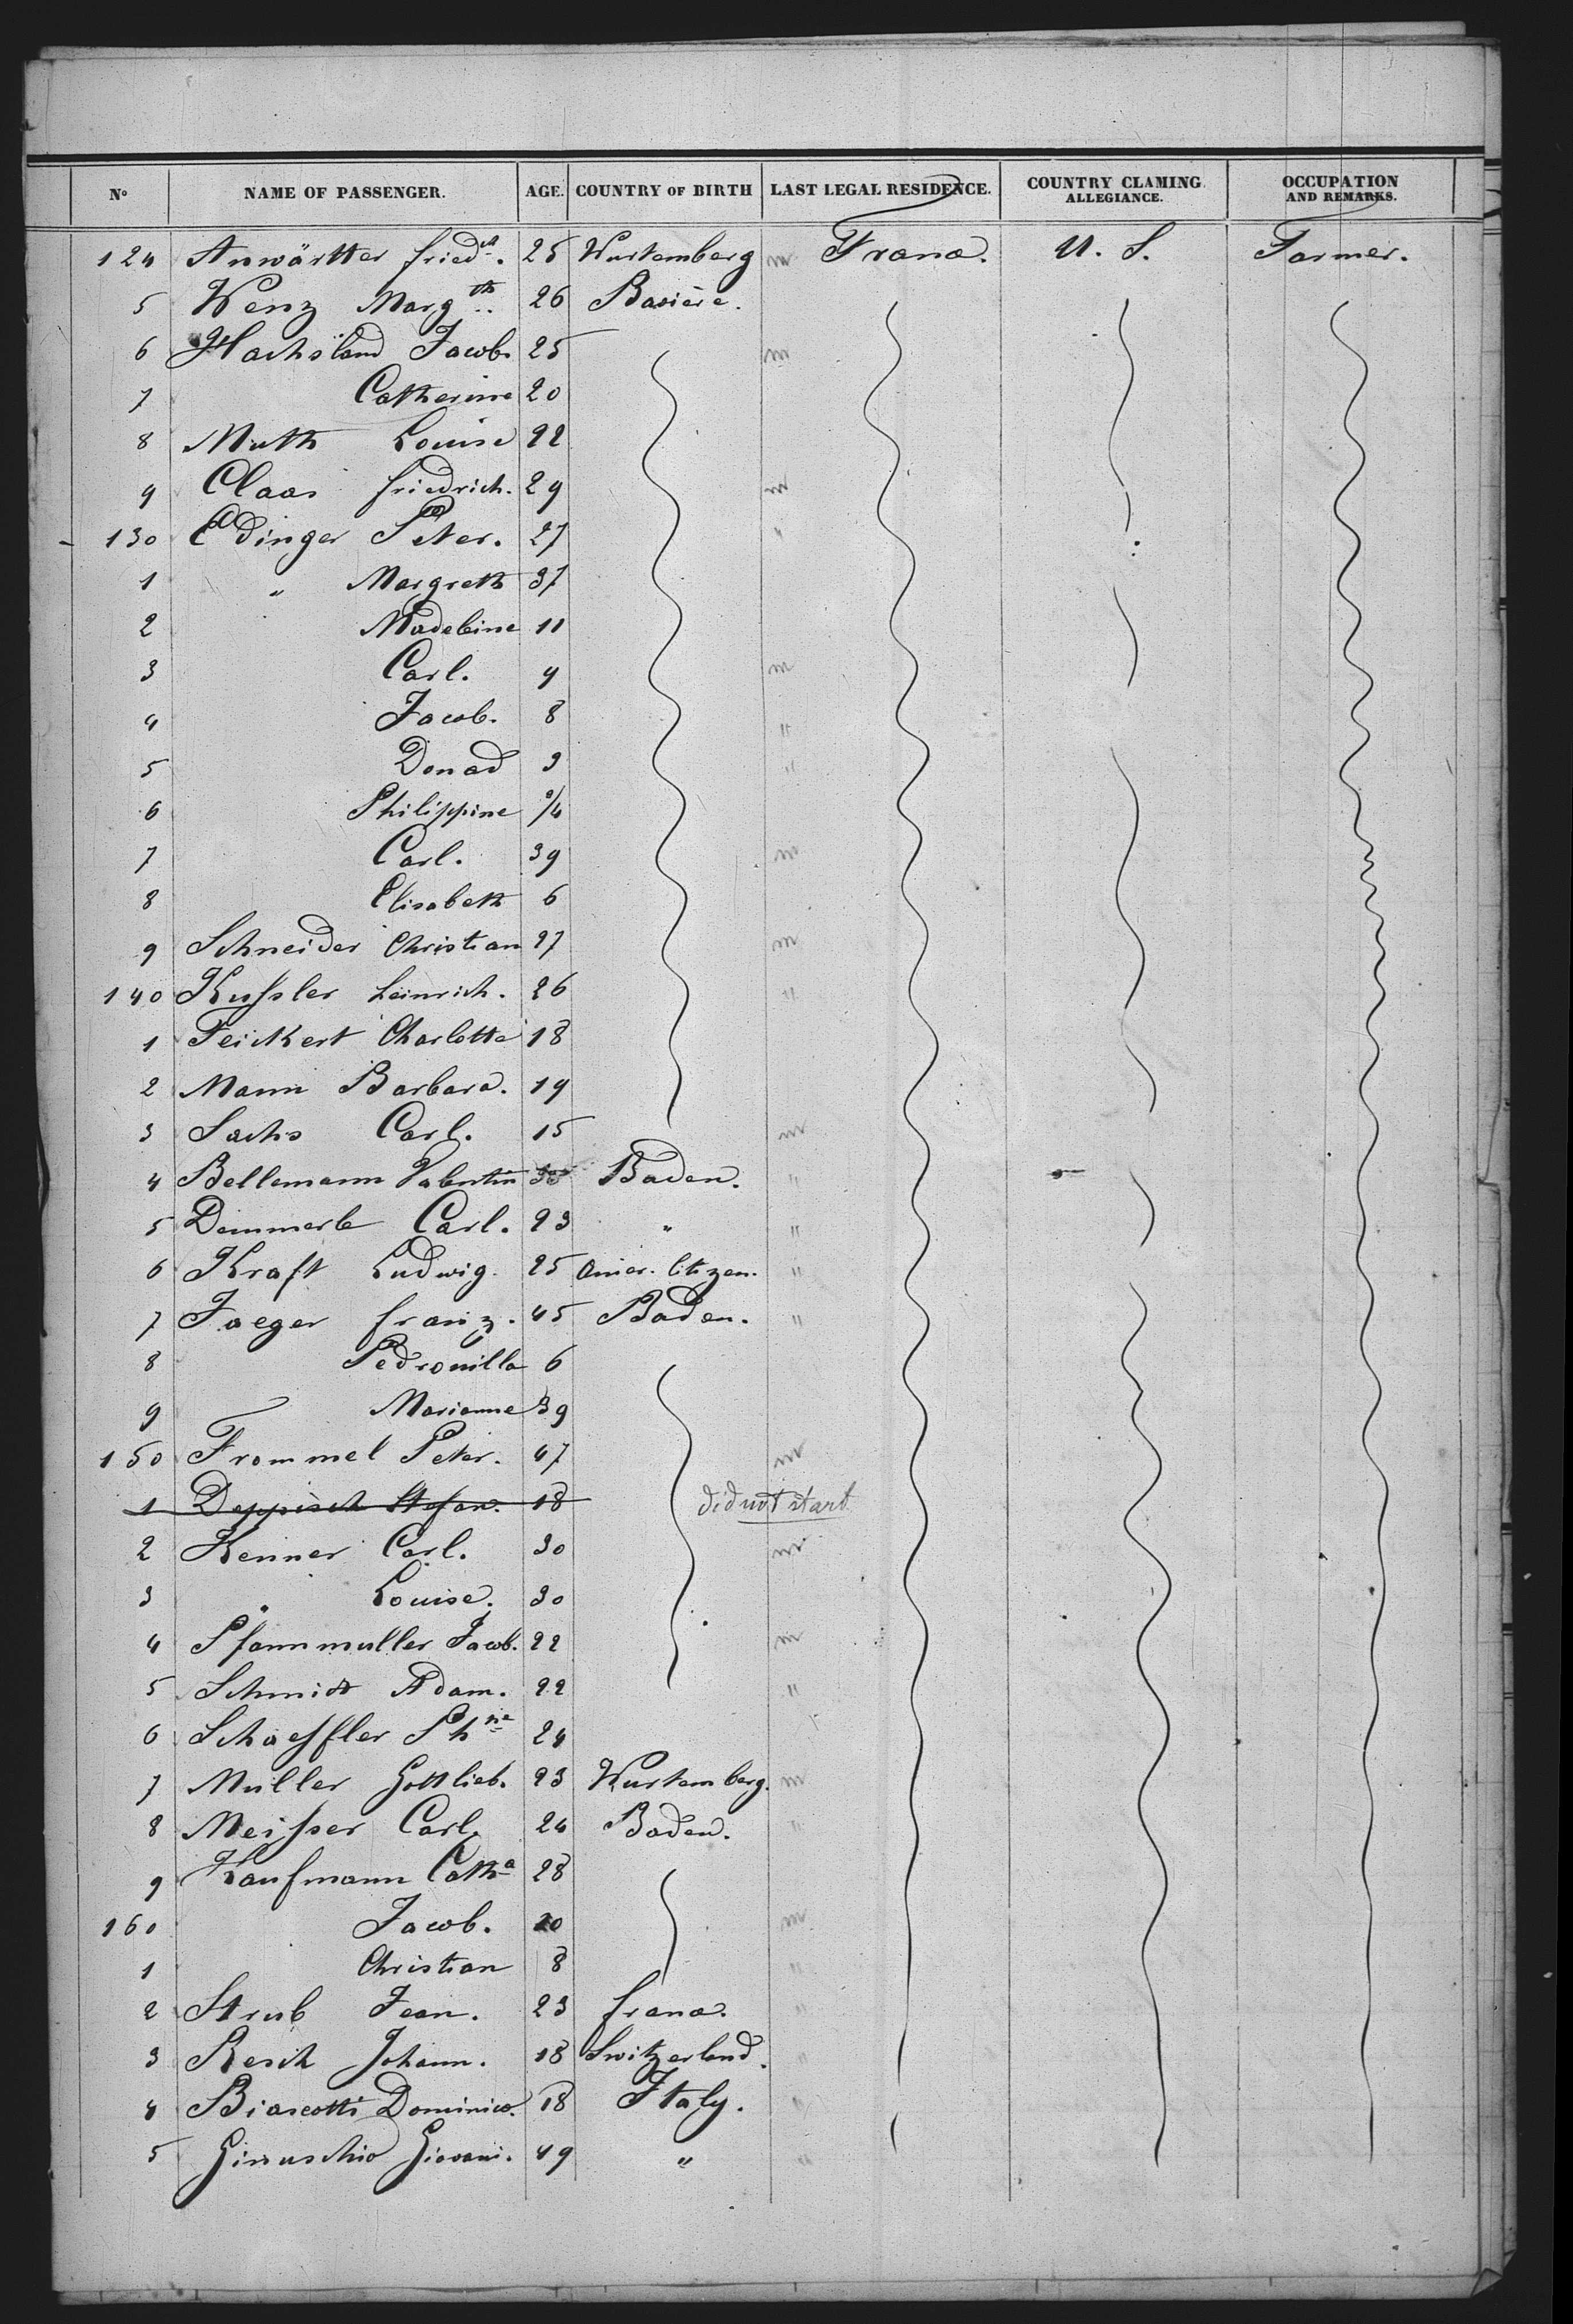 N° NAME OF PASSENGER. AGE. COUNTRY OF BIRTH LAST LEGAL RESIDENCE. COUNTRY CLAMING ALLEGIANCE. OCCUPATION AND REMARKS.
124 Anwärtter fried. 25 Wurtemberg m France. U. S. Farmer.
5 Wenz Margth. 26 Bavière.
6 Hachsland Jacob. 25 m
7 Catherine 20
8 Muth Louise 22
9 Claas friedrich. 29 m
130 Edinger Peter. 27 "
1 " Margreth 37
2 Madeleine 11
3 Carl. 9 m
4 Jacob. 8 "
5 Donad 3 "
6 Philippine /4
7 Carl. 39 m
8 Elisabeth 6
9 Schneider Christian 27 m
140 Kussler heinrich. 26 "
1 Feickert Charlotte 18
2 Mann Barbara. 19
3 Sachs Carl. 15 m
4 Bellemann Valentin Baden. "
5 Demmerle Carl. 23 " "
6 Kraft Ludwig. 25 amer. Citizen. "
7 Jaeger franz. 45 Baden. "
8 Pedronilla 6
9 Marianne 39
150 Frommel Peter. 47 m
1 Deppisch Stefan. 18 did not start
2 Kenner Carl. 30 m
3 " Louise. 30
4 Pfannmuller Jacob. 22 m
5 Schmidt Adam. 22 "
6 Schaeffler Phne 24
7 Muller Gottlieb. 23 Wurtemberg. m
8 Meisser Carl. 24 Baden. "
9 Kaufmann Catha 28
160 Jacob. 20 m
1 Christian 8 "
2 Strub Jean. 23 france. "
3 Resch Johann. 18 Switzerland. "
4 Biascotti Dominico. 18 Italy. "
5 Ginuschio Giovani. 49 " "